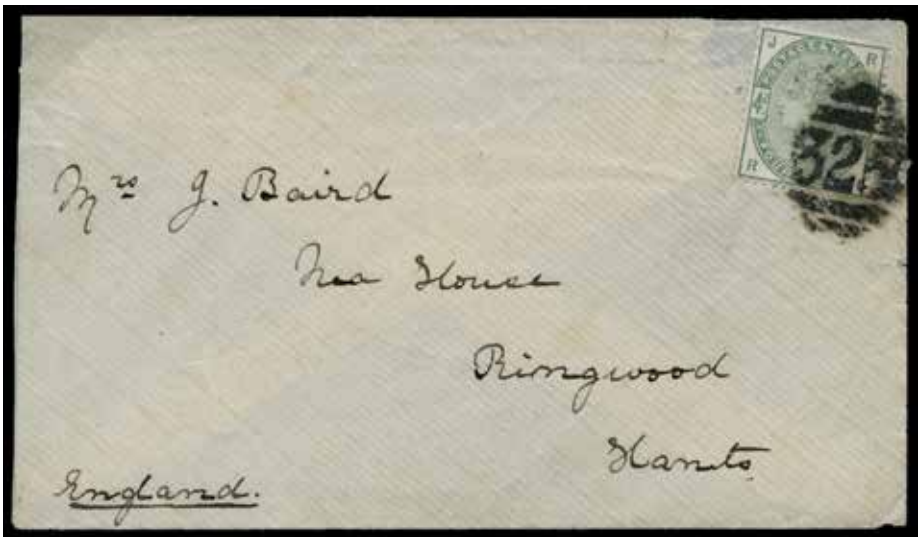 J R
R
325
Mrs J. Baird
Nea House
Ringwood
Hants
England.